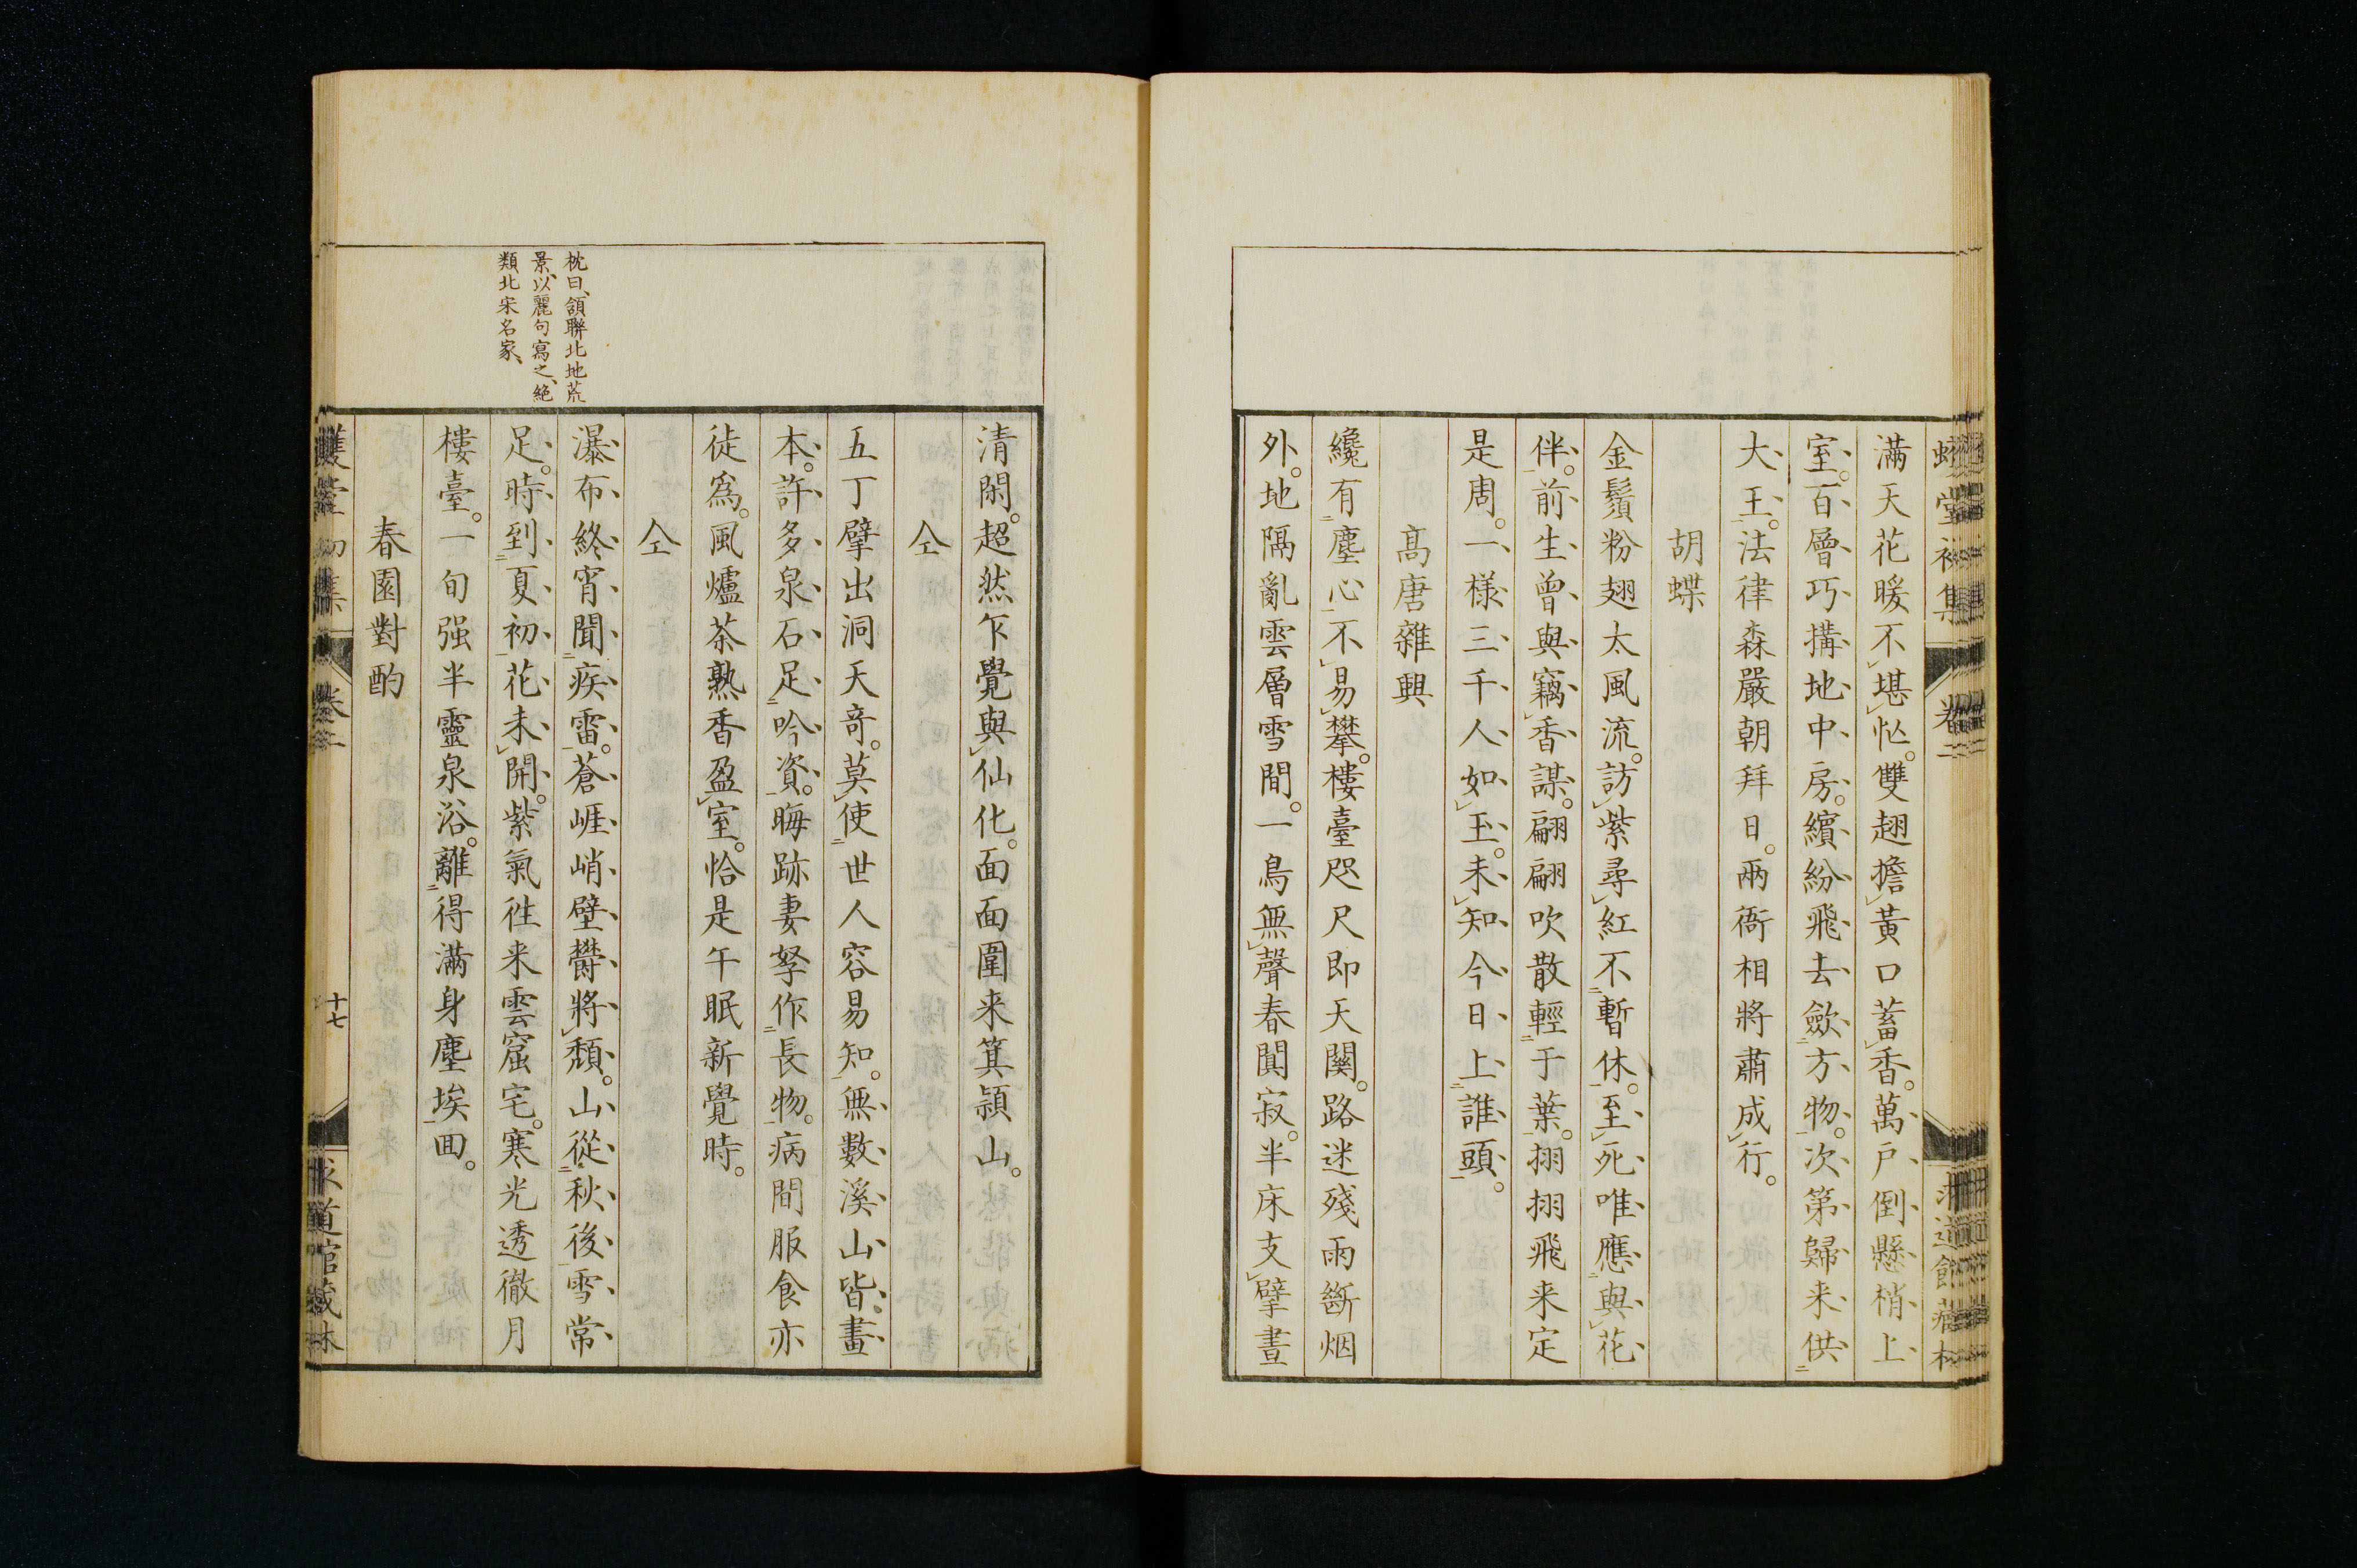 滿天花暖不堪忙。雙翅擔黃口蓄香。萬戶倒懸梢上
室。百層巧搆地中房。繽紛飛去斂方物。次第歸来供
大王。法律森嚴朝拜日。兩衙相將肅成行。
胡蝶
金鬚粉翅太風流。訪紫尋紅不暫休。至死唯應與花
伴。前生曾與竊香謀。翩翩吹散輕于葉。栩栩飛来定
是周。一樣三千人如玉。未知今日上誰頭。
髙唐雜興
纔有塵心不易攀。樓臺咫尺即天關。路迷殘雨斷烟
外。地隔亂雲層雪間。一鳥無聲春闃寂。半床支擘晝
清閑。超然乍覺與仙化。面面圍来箕潁山。
仝
五丁擘出洞天竒。莫使世人容易知。無數溪山皆畫
本。許多泉石足吟資。晦跡妻孥作長物。病間服食亦
徒爲。風爐茶熟香盈室。恰是午眠新覺時。
仝
瀑布終宵聞疾雷。蒼崕峭壁欝將頽。山從秋後雪常
足。時到夏初花未開。紫氣徃来雲窟宅。寒光透徹月
樓臺。一旬强半靈泉浴。離得滿身塵埃囬。
春園對酌
枕曰、頷聯北地荒
景、以麗句寫之、絶
類北宋名家、
卷二
十七